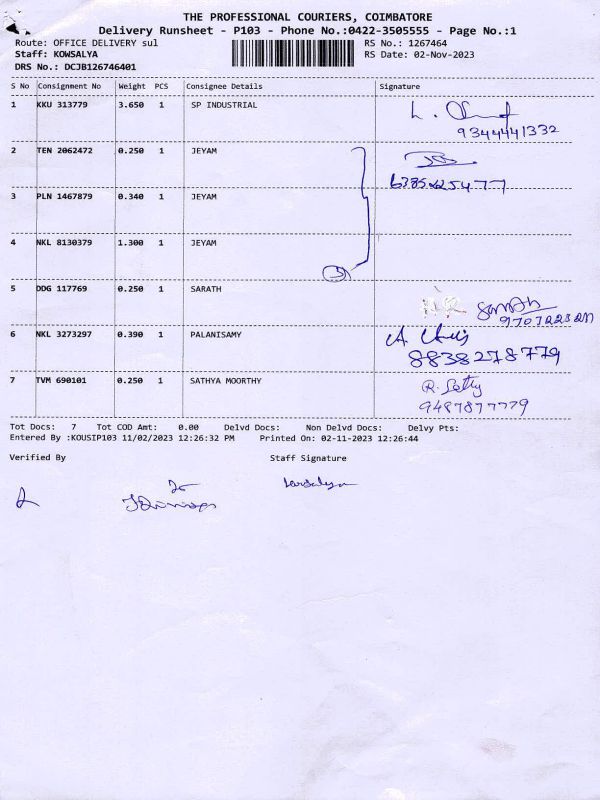 THE PROFESSIONAL COURIERS, COIMBATORE
Delivery Runsheet - P103 - Phone No.:0422-3505555 - Page No.:1
Route: OFFICE DELIVERY sul RS No.: 1267464
Staff: KOWSALYA RS Date: 02-Nov-2023
DRS No.: DCJB126746401
S No Consignment No Weight PCS Consignee Details Signature
1 KKU 313779 3.650 1 SP INDUSTRIAL
9344441332
2 TEN 2062472 0.250 1 JEYAM
6385225477
3 PLN 1467879 0.340 1 JEYAM
4 NKL 8130379 1.300 1 JEYAM
3
5 DDG 117769 0.250 1 SARATH Sarath
6 NKL 3273297 0.390 1 PALANISAMY
8838278779
7 TVM 690101 0.250 1 SATHYA MOORTHY R. Sethy
9487877779
Tot Docs: 7 Tot COD Amt: 0.00 Delvd Docs: Non Delvd Docs: Delvy Pts:
Entered By :KOUSIP103 11/02/2023 12:26:32 PM Printed On: 02-11-2023 12:26:44
Verified By Staff Signature